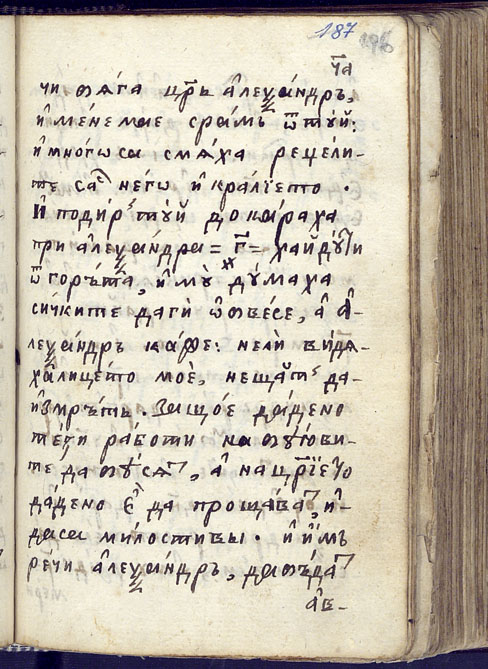 187
196
ча
чи ѿѧга цр҃ь а҆леѯа́ндръ,
и҆ ме́не мае срамь ѿ туй:
и҆ мно́гѡ са смѧ́ха рецели-
те са не́гѡ и҆ кралїето.
И҆ поди́р туй дока́раха
при а҆леѯа́ндра = г҃ = хайду́ти
ѿ горъ́та, и҆ му̀ ду́маха
си́чките да ги ѡ҆бѣ́се, а҆ а҆-
леѯа́ндръ ка́же: нели̑ ви́дѧ-
ха лице́то моѐ, неща́т да-
и҆змрътъ. Защо́е да́дено
те́ги ра́боти на
те да, а҆ на цр҃їето
да́дено е҆ да проща́ват, и҆-
да са ми́лостивы. и҆ и҆мъ
ре́чи а҆леѯа́ндръ, да бъ́дат
а҆в-